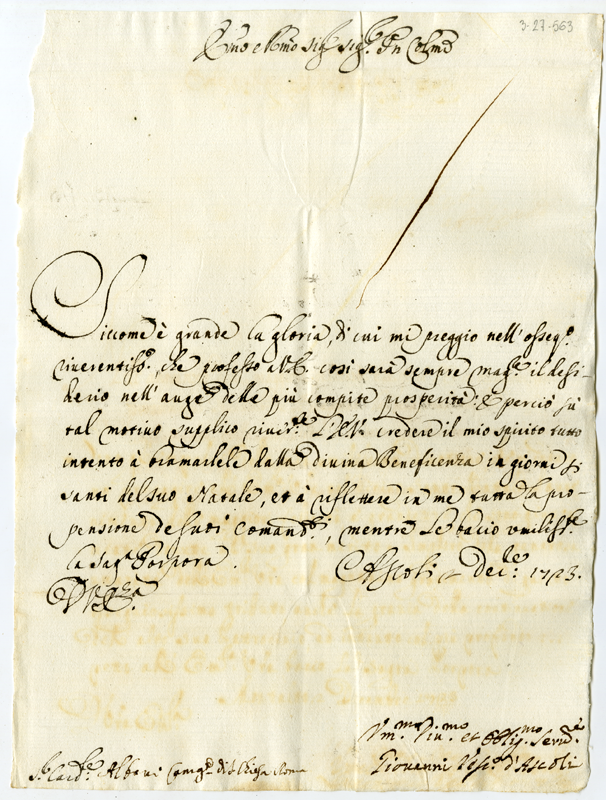 3-27-563
Emo e Rmo Sigr Sigr Pn Colmo
Siccome è grande la gloria, di cui mi preggio nell'osseqo
riverentisso che professo a V.E. così sarà sempre maggre il desi-
derio nell'auge delle più compite prosperità: E perciò sù
tal motivo supplico river.te l'E.V. credere il mio spirito tutto
intento à bramarlele dalla divina Beneficenza in giorni sì
santi del suo Natale, et à riflettere in me tutta la pro-
pensione de suoi comandi, mentre le bacio umilisste
la sagra Porpora.
Ascoli Dec.e 1723.
D V.Eza
Vm.mo Diu.mo et Oblig.mo Serv.e
Sr Card.le Albani Camgo di S. Chiesa Roma
Giovanni Vesc.o d'Ascoli